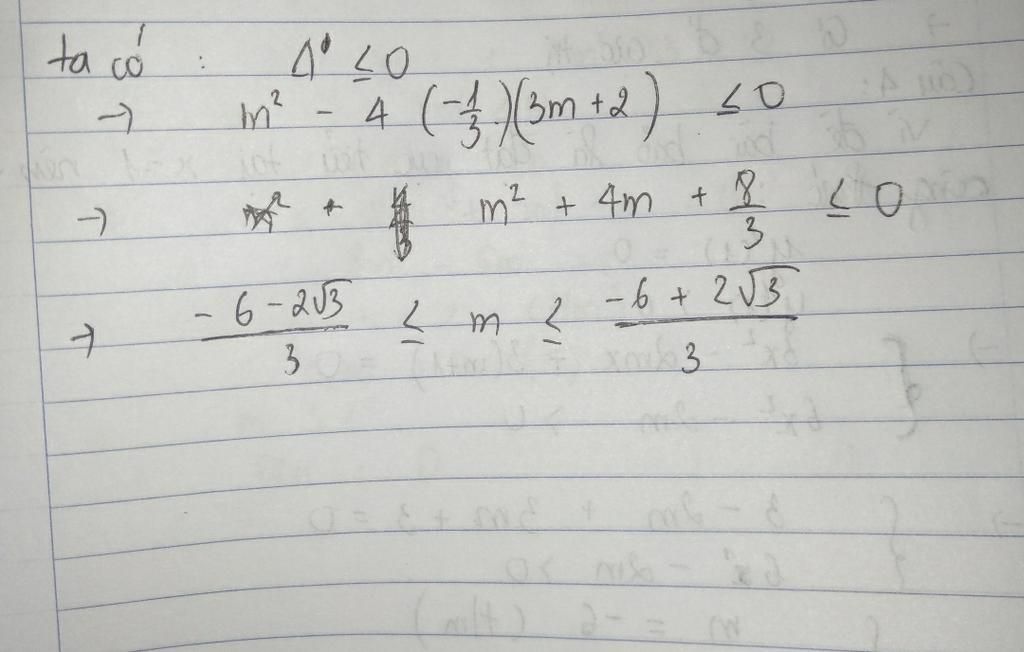 ta có : Δ' ≤ 0
→ m² - 4 (-1/3)(3m + 2) ≤ 0
→ m² + 4m + 8/3 ≤ 0
→ (-6 - 2√3)/3 ≤ m ≤ (-6 + 2√3)/3